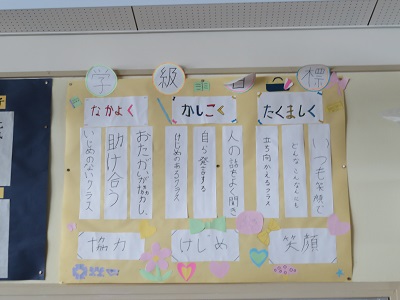 学級目標
なかよく
おたがいが協力し、
助け合う
いじめのないクラス
かしこく
人の話をよく聞き
自ら発言する
けじめのあるクラス
たくましく
いつも笑顔で
どんなこんなんにも
立ち向かえるクラス
協力
けじめ
笑顔